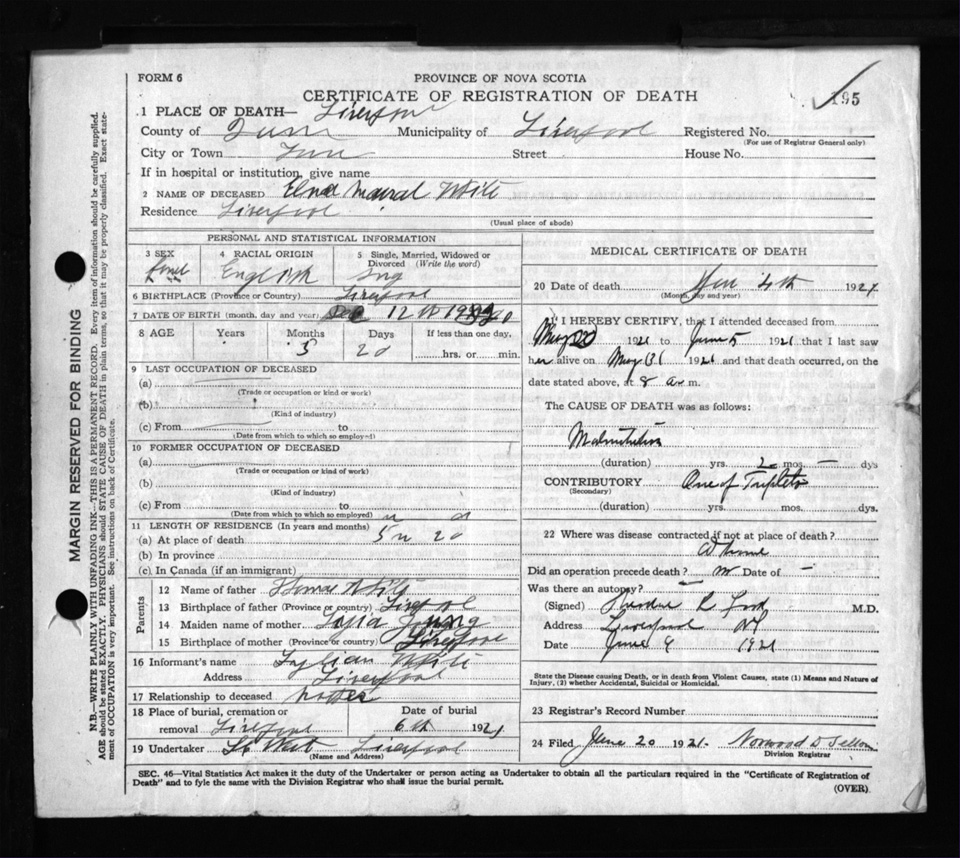 FORM 6
PROVINCE OF NOVA SCOTIA
CERTIFICATE OF REGISTRATION OF DEATH
195
1 PLACE OF DEATH—
County of Municipality of Liverpool Registered No.
(For use of Registrar General only)
City or Town Street House No.
If in hospital or institution, give name
2 NAME OF DECEASED White
Residence Liverpool
(Usual place of abode)
PERSONAL AND STATISTICAL INFORMATION
3 SEX 4 RACIAL ORIGIN 5 Single, Married, Widowed or Divorced (Write the word)
English Sng
6 BIRTHPLACE (Province or Country) Liverpool
7 DATE OF BIRTH (month, day and year) Dec 12
8 AGE Years Months Days If less than one day,
5 20 hrs. or min.
9 LAST OCCUPATION OF DECEASED
(a)
(Trade or occupation or kind or work)
(b)
(Kind of industry)
(c) From to
(Date from which to which so employed)
10 FORMER OCCUPATION OF DECEASED
(a)
(Trade or occupation or kind of work)
(b)
(Kind of industry)
(c) From to
(Date from which to which so employed)
11 LENGTH OF RESIDENCE (In years and months)
(a) At place of death 5 m 20
(b) In province
(c) In Canada (if an immigrant)
Parents
12 Name of father Thomas White
13 Birthplace of father (Province or country) Liverpool
14 Maiden name of mother Young
15 Birthplace of mother (Province or country) Liverpool
16 Informant's name White
Address Liverpool
17 Relationship to deceased
18 Place of burial, cremation or removal Liverpool
Date of burial 6th 1921
19 Undertaker West Liverpool
(Name and Address)
MEDICAL CERTIFICATE OF DEATH
20 Date of death 4th 1921
(Month, day and year)
I HEREBY CERTIFY, that I attended deceased from
May 1921 to June 5 1921 that I last saw
her alive on May 31 1921 and that death occurred, on the
date stated above, at 8 a.m.
The CAUSE OF DEATH was as follows:
Malnutrition
(duration) yrs. 2 mos. — dys
CONTRIBUTORY One of Triplets
(Secondary)
(duration) yrs. mos. dys.
22 Where was disease contracted if not at place of death?
Did an operation precede death? Date of —
Was there an autopsy?
(Signed) R Ford M.D.
Address Liverpool NS
Date June 9 1921
State the Disease causing Death, or in death from Violent Causes, state (1) Means and Nature of Injury, (2) whether Accidental, Suicidal or Homicidal.
23 Registrar's Record Number
24 Filed June 20 1921. Norwood D
Division Registrar
SEC. 46—Vital Statistics Act makes it the duty of the Undertaker or person acting as Undertaker to obtain all the particulars required in the "Certificate of Registration of
Death" and to fyle the same with the Division Registrar who shall issue the burial permit.
(OVER)
MARGIN RESERVED FOR BINDING
N.B.—WRITE PLAINLY WITH UNFADING INK—THIS IS A PERMANENT RECORD. Every item of information should be carefully supplied.
AGE should be stated EXACTLY. PHYSICIANS should STATE CAUSE OF DEATH in plain terms, so that it may be properly classified. Exact state-
ment of OCCUPATION is very important. See instructions on back of Certificate.